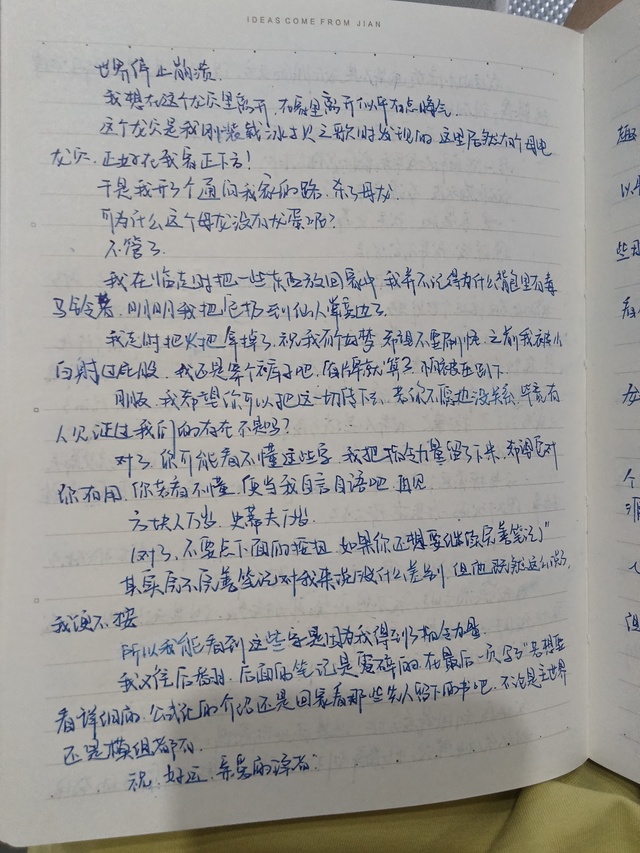 IDEAS COME FROM JIAN
世界停止崩溃.
我想在这个龙穴里离开,不在家里离开似乎有点晦气.
这个龙穴是我刚装载冰与火之歌时发现的,这里居然有个母电
龙穴.正好在我家正下方!
于是我开了个通向我家的路,杀了母龙.
可为什么这个母龙没有龙蛋呢?
不管了.
我在临走时把一些东西放回家中,我并不记得为什么背包里有毒
马铃薯,刚刚我把它扔到仙人掌旁边了.
我走时把火把拿掉了.祝我有个好梦,希望不要刷怪.之前我被小
白射过屁股,我还是穿个裤子吧,
刚版,我希望你可以把这一切传下去,若你不愿也没关系,毕竟有
人见证过我们的存在不是吗?
对了,你可能看不懂这些字,我把指令力量留了下来,希望它对
你有用,你若看不懂,便当我自言自语吧.再见.
方块人万岁,史蒂夫万岁.
(对了,不要点下面的按钮,如果你还想要继续完善笔记)"
其实完不完善笔记对我来说没什么差别,但他既然这么说了,
我便不按
所以我能看到这些字是因为我得到了指令力量.
我又往后翻,后面的笔记是零碎的,在最后一页写了"若想要
看详细的,公式化的介绍还是回家看那些先人留下的书吧,不论是主世界
还是模组都有.
祝,好运,亲爱的译者:
趣
以
些
看
女
个